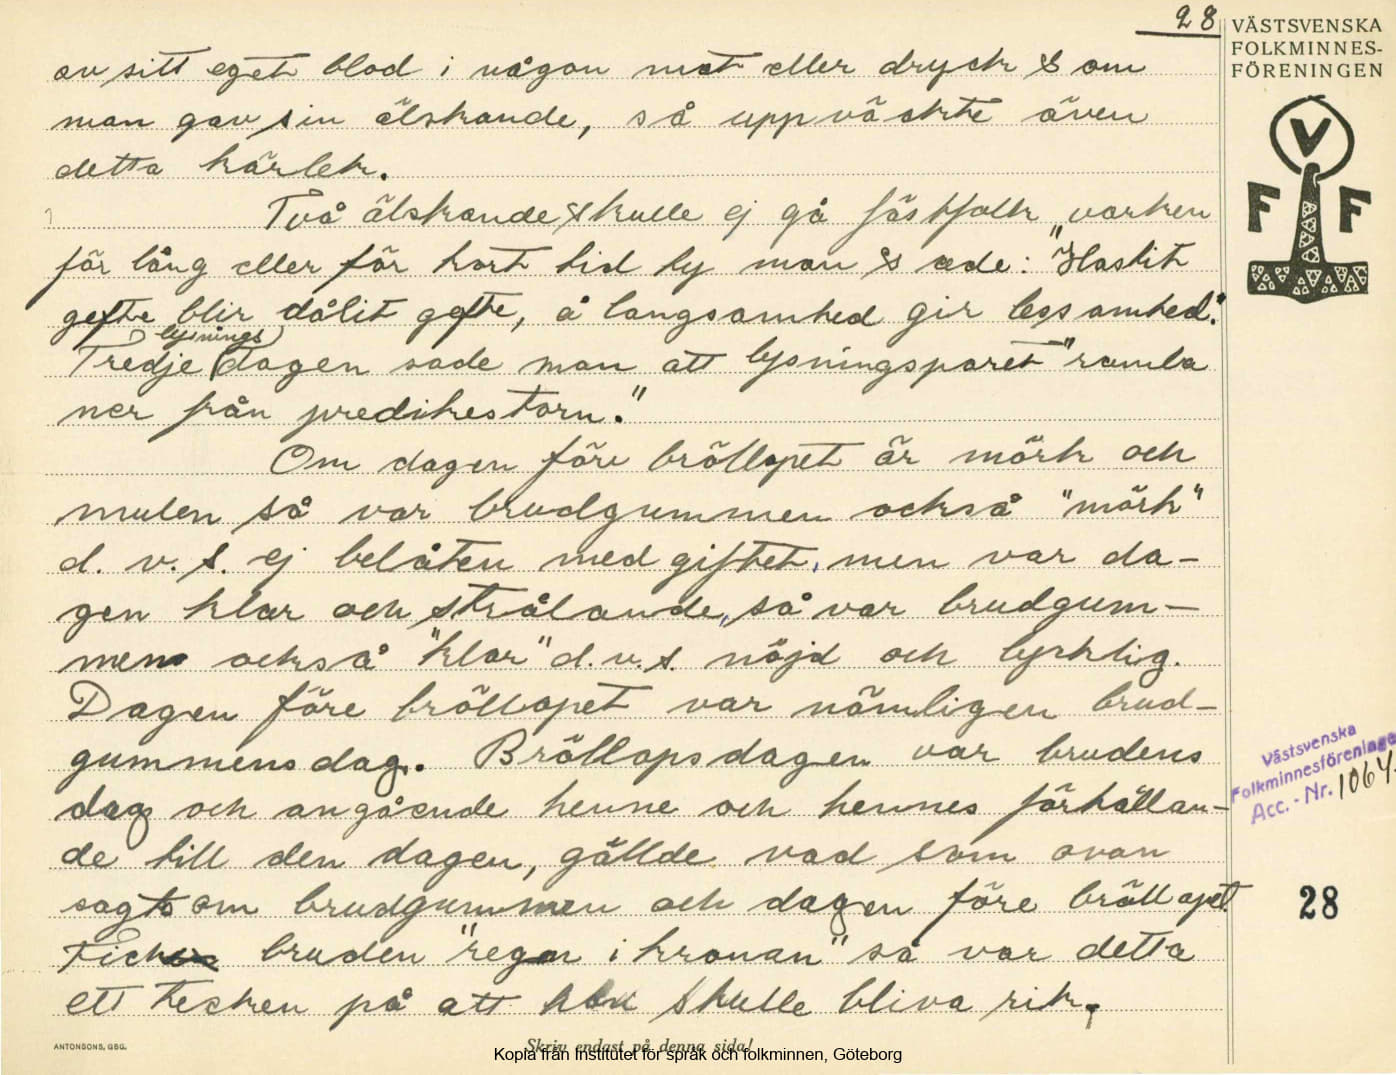 28
VÄSTSVENSKA
FOLKMINNES-
FÖRENINGEN
V
F F
av sitt eget blod i någon mat eller dryck & om
man gav sin älskande, så uppväckte även
detta kärlek.
Två älskande skulle ej gå fästfolk varken
för lång eller för kort tid ty man sade: "Hastit
gefte blir dålit gefte, å langsamhed gir lessamhed."
lysnings
Tredje (dagen sade man att lysningsparet "ramla
ner från predikestorn."
Om dagen före bröllopet är mörk och
mulen så var brudgummen också "mörk"
d. v. s. ej belåten med giftet, men var da-
gen klar och strålande, så var brudgum-
men också "klar" d.v.s. nöjd och lycklig.
Dagen före bröllopet var nämligen brud-
gummens dag. Bröllopsdagen var brudens
dag och angående henne och hennes förhållan-
de till den dagen, gällde vad som ovan
sagts om brudgummen och dagen före bröllopet.
Fick bruden "regn i kronan" så var detta
ett tecken på att hon skulle bliva rik.
Västsvenska
Folkminnesföreningen
Acc. - Nr. 1064
28
ANTONSONS, GBG.
Skriv endast på denna sida!
Kopia från Institutet för språk och folkminnen, Göteborg